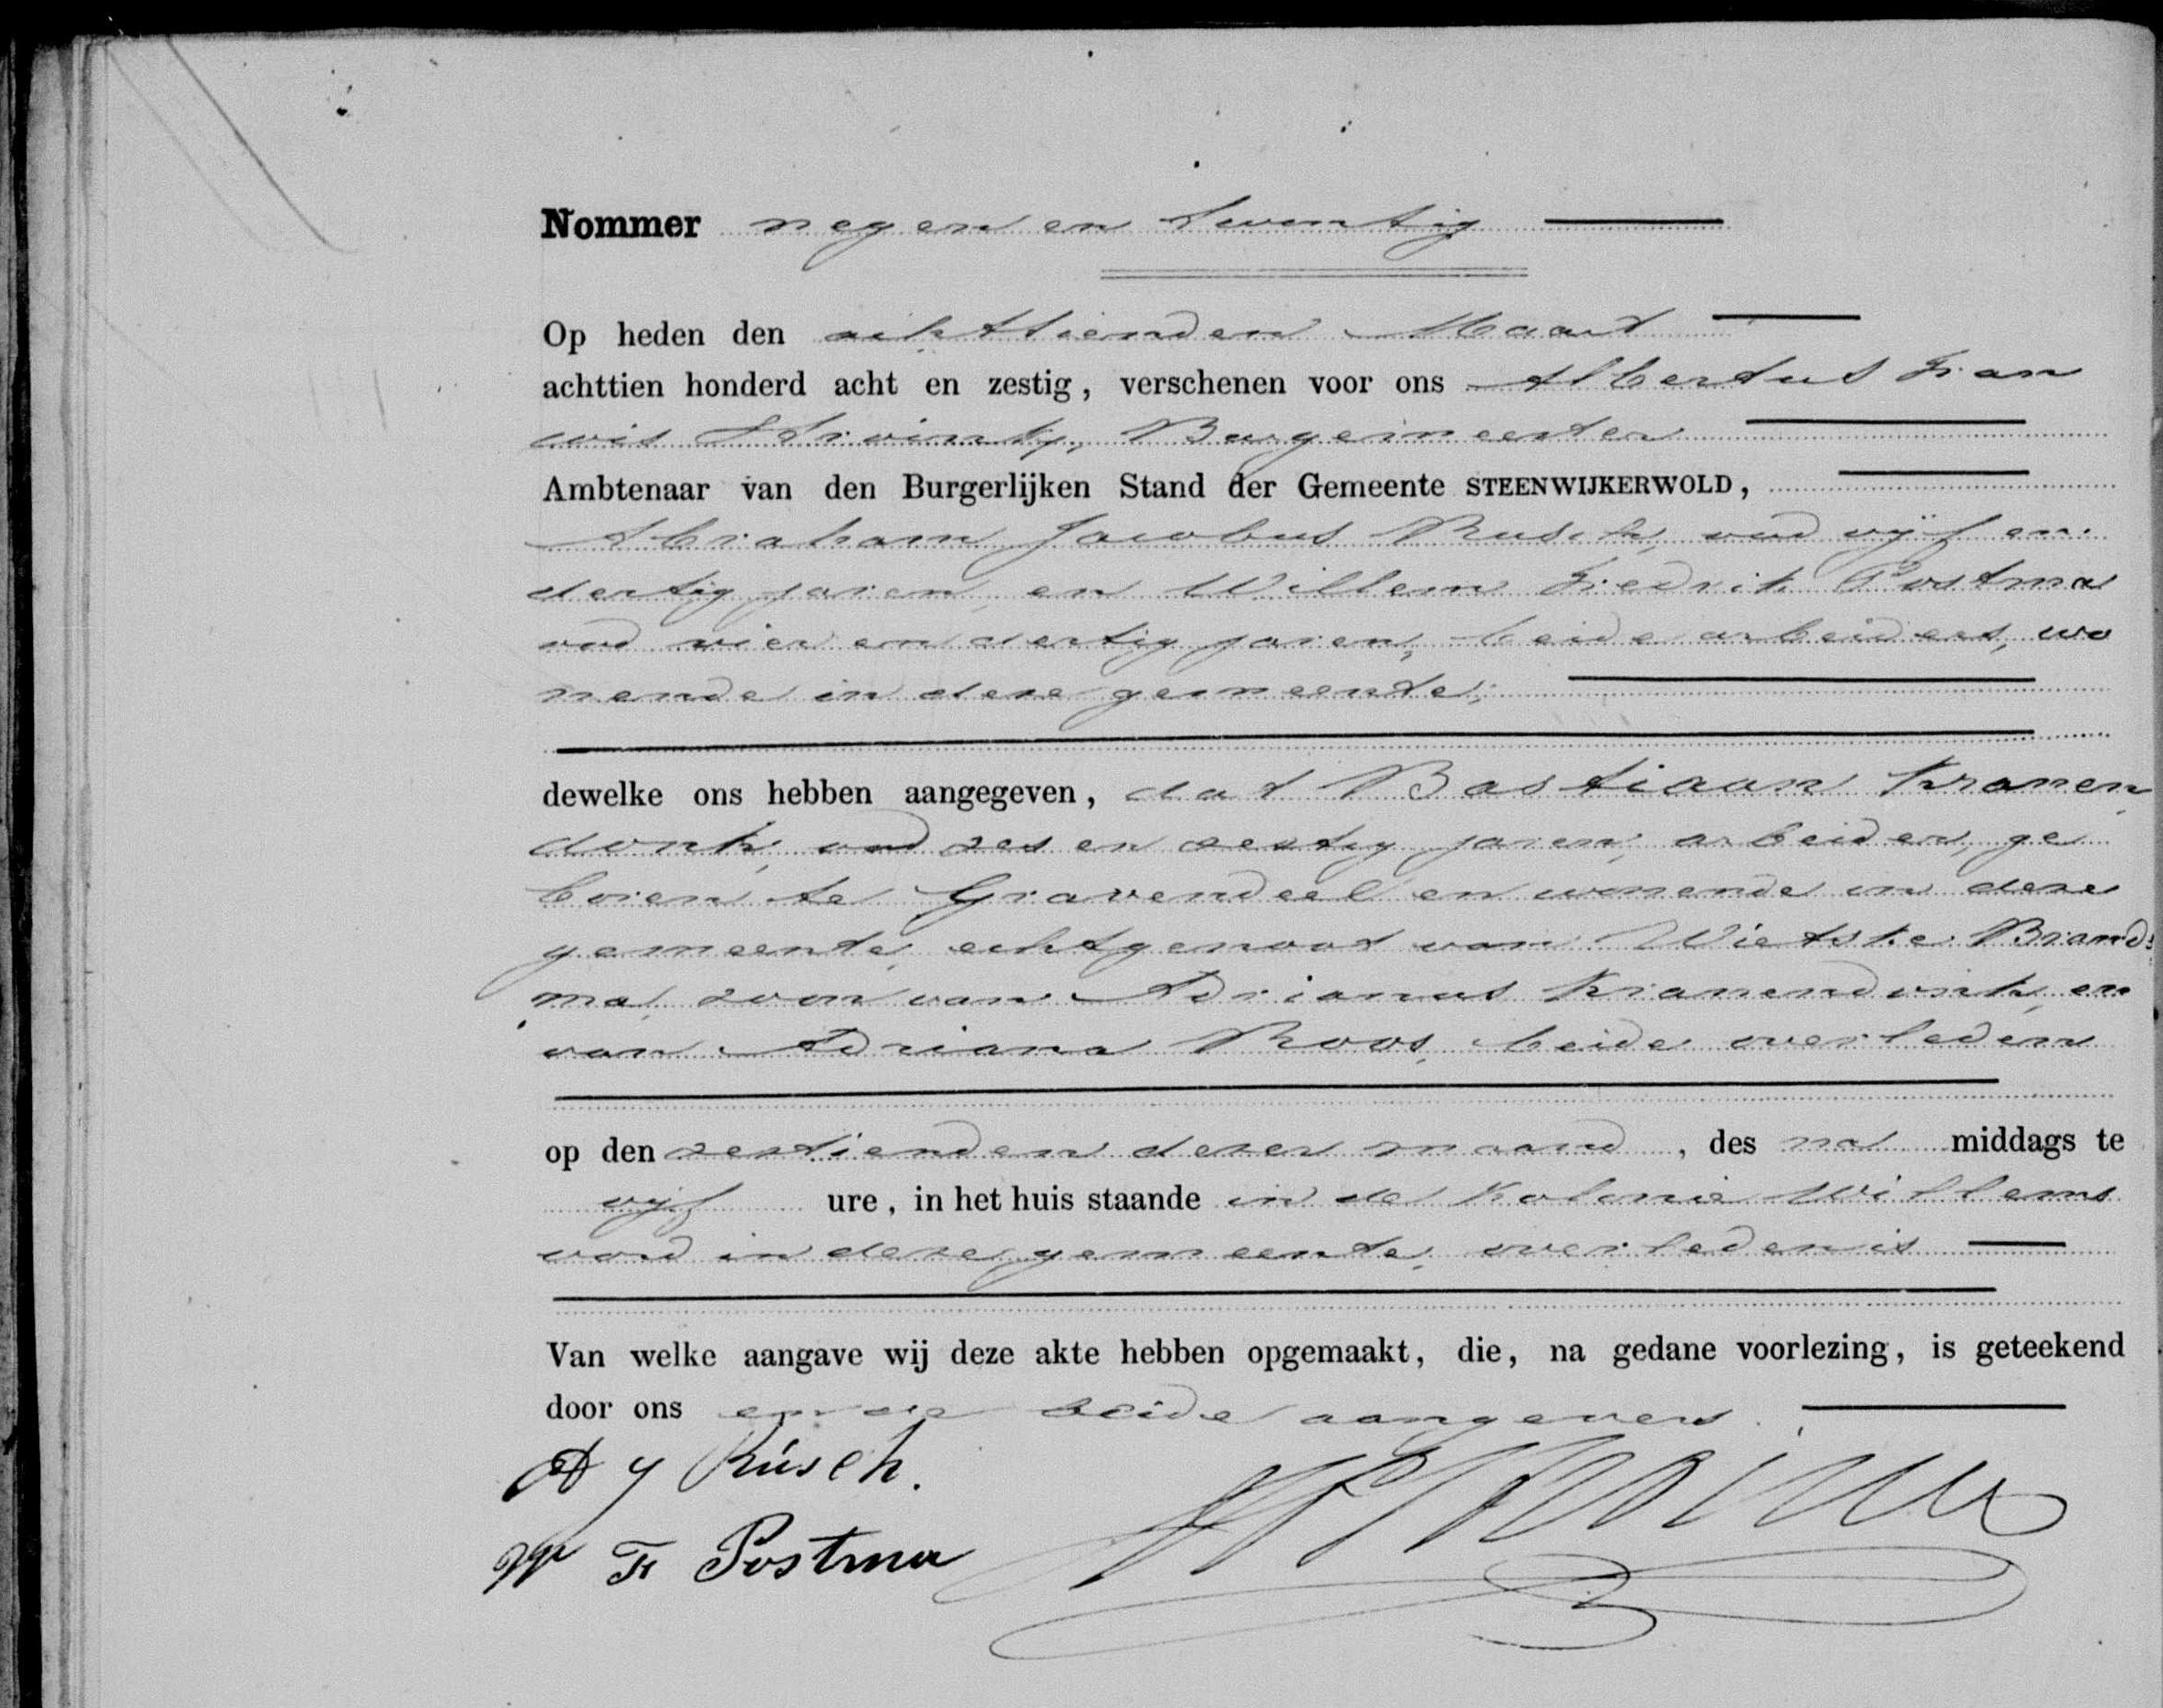 Nommer negen en twentig
Op heden den achttienden Maart
achttien honderd acht en zestig, verschenen voor ons Albertus Fran
cois Stroink, Burgemeester
Ambtenaar van den Burgerlijken Stand der Gemeente STEENWIJKERWOLD,
Abraham Jacobus Rusch, oud vijf en
dertig jaren, en Willem Fredrik Postma
oud vier en dertig jaren, beide arbeiders, wo
nende in deze gemeente,
dewelke ons hebben aangegeven, dat Bastiaan Kranen
donk, oud zes en zestig jaren, arbeider, ge
boren te Gravendeel en wonende in deze
gemeente, echtgenoot van Wietske Brands
ma, zoon van Adrianus Kranendonk, en
van Adriana Roos, beide overleden
op den zestienden dezer maand, des na middags te
vijf ure, in het huis staande in de Kolonie Willems
oord in deze gemeente, overleden is
Van welke aangave wij deze akte hebben opgemaakt, die, na gedane voorlezing, is geteekend
door ons en de beide aangevers.
A J Rúsch.
W F Postma